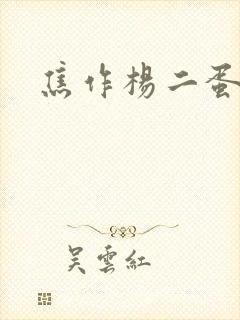 焦作楊二蛋
吴雲紅